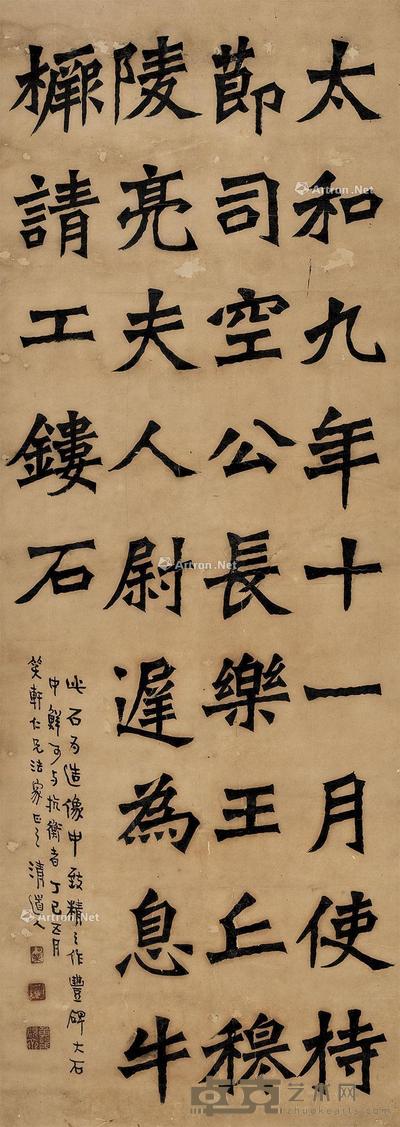 太和九年十一月使持
節司空公長樂王丘穆
陵亮夫人尉遲為息牛
橛請工鏤石
此石為造像中致精之作豐碑大石
中鮮可與抗衡者丁巳五月
笑軒仁兄法家正之清道人
Artron.Net
Artron.Net
Artron.Net
Artron.Net
卓克艺术网
zhuokearts.com